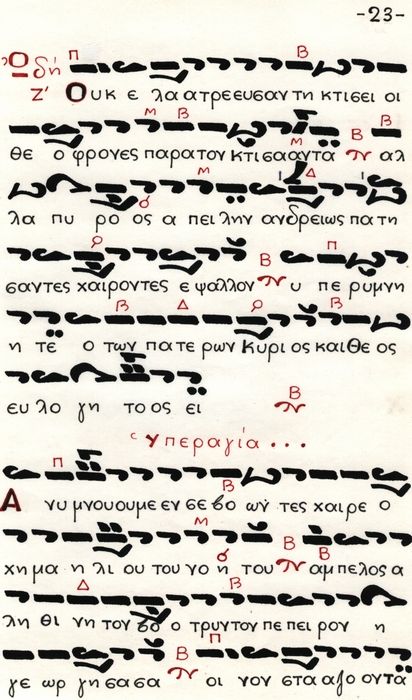 -23-
Ὠδή Π Β
Ζ' Ουκ ε λα α τρε ευ σαν τη κτι σει οι
Μ Β Μ Β Β
θε ο φρο νες πα ρα τον κτι σα αν τα αλ
Μ Δ
λα πυ ρο ος α πει λην αν δρει ως πα τη
Β Π
σαν τες χαι ρον τες ε ψαλ λον υ πε ρυ μνη
Β Δ Β
η τε ο των πα τε ρων Κυ ρι ος και Θε ος
Β
ευ λο γη το ος ει
Υπεραγία...
Π Β
Α νυ μνου ου με εν σε βο ων τες χαι ρε ο
Μ Β Β
χη μα η λι ου του νο η του αμ πε λος α
Δ Β
λη θι νη τον βο ο τρυν τον πε πει ρον η
Β Π
γε ωρ γη σα σα οι νον στα α ζο ον τα